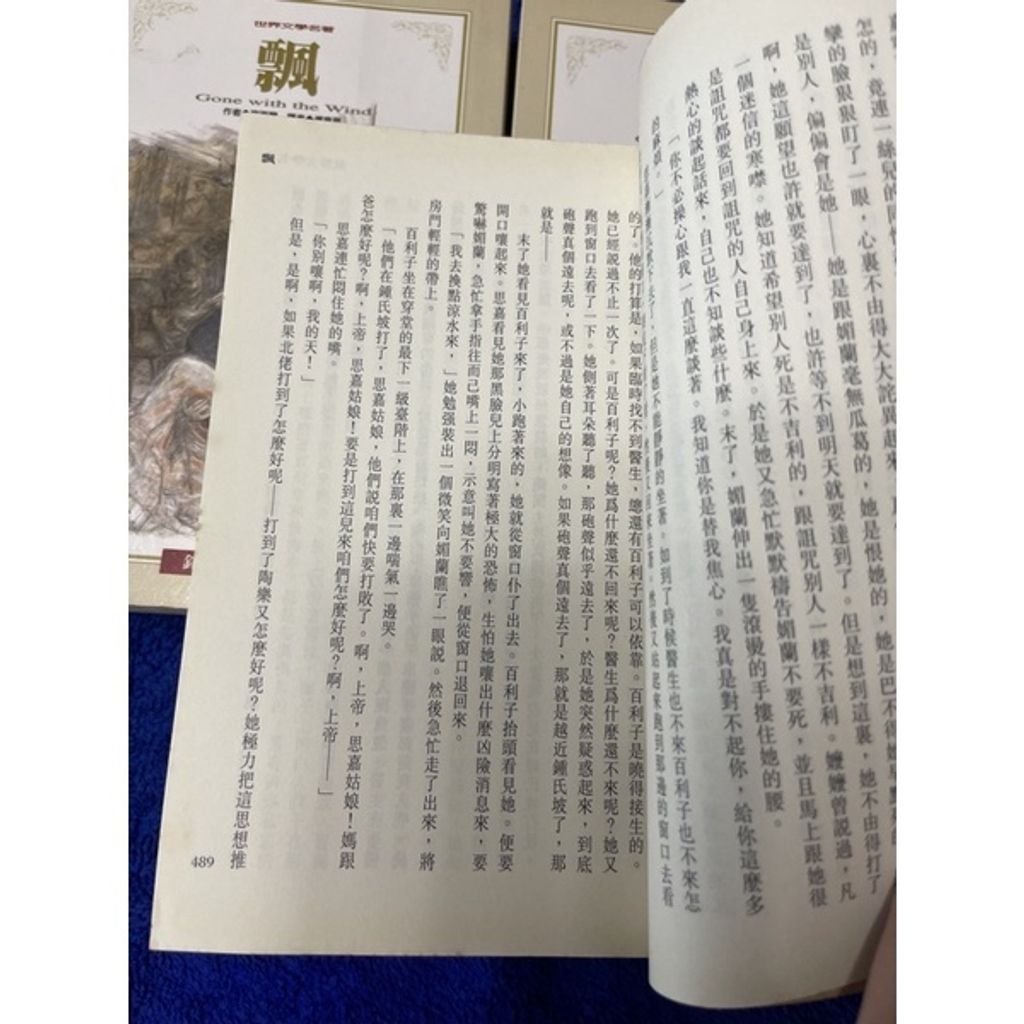 世界文學名著
飄
Gone with the Wind
飄
的了。他的打算是，如果臨時找不到醫生，總還有百利子可以依靠。百利子是曉得接生的。
她已經說過不止一次了。可是百利子呢？她爲什麼還不回來呢？醫生爲什麼還不來呢？她又
跑到窗口去看了一下。她側著耳朵聽了聽，那砲聲似乎遠去了，於是她突然疑惑起來，到底
砲聲真個遠去呢，或不過是她自己的想像。如果砲聲真個遠去了，那就是越近鍾氏坡了，那
就是——
末了她看見百利子來了，小跑著來的，她就從窗口仆了出去。百利子抬頭看見她。便要
開口嚷起來。思嘉看見她那黑臉兒上分明寫著極大的恐怖，生怕她嚷出什麼凶險消息來，要
驚嚇媚蘭，急忙拿手指往而己嘴上一悶，示意叫她不要響，便從窗口退回來。
「我去換點涼水來，」她勉强裝出一個微笑向媚蘭瞧了一眼說。然後急忙走了出來，將
房門輕輕的帶上。
百利子坐在穿堂的最下一級臺階上，在那裏一邊喘氣一邊哭。
「他們在鍾氏坡打了，思嘉姑娘，他們說咱們快要打敗了。啊，上帝，思嘉姑娘！媽跟
爸怎麼好呢？啊，上帝，思嘉姑娘！要是打到這兒來咱們怎麼好呢？啊，上帝——」
思嘉連忙悶住她的嘴。
「你別嚷啊，我的天！」
但是，是啊，如果北佬打到了怎麼好呢——打到了陶樂又怎麼好呢？她極力把這思想推
489
怎的，竟連一絲兒的同情
孿的臉狠狠盯了一眼，心裏不由得大大詫異起來
是別人，偏偏會是她——她是跟媚蘭毫無瓜葛的，她是恨她的，她是巴不得她早點死的
啊，她這願望也許就要達到了，也許等不到明天就要達到了。但是想到這裏，她不由得打了
一個迷信的寒噤。她知道希望別人死是不吉利的，跟詛咒別人一樣不吉利。嬤嬤曾說過，凡
是詛咒都要回到詛咒的人自己身上來。於是她又急忙默默禱告媚蘭不要死，並且馬上跟她很
熱心的談起話來，自己也不知談些什麼。末了，媚蘭伸出一隻滾燙的手摟住她的腰。
「你不必操心跟我一直這麼談著。我知道你是替我焦心。我真是對不起你，給你這麼多
的麻煩。」
不能靜靜的坐著。如到了時候醫生也不來百利子也不來怎
然後又站起來跑到那邊的窗口去看